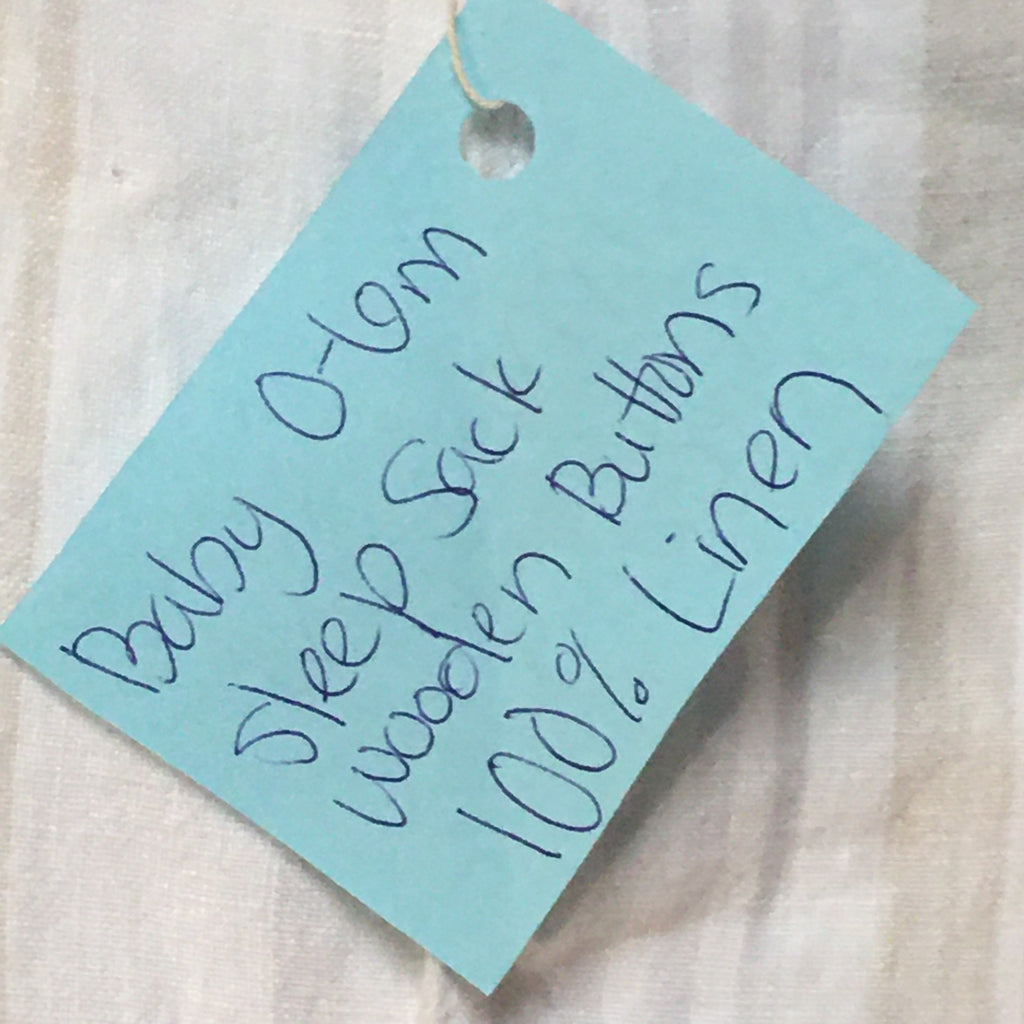 Baby 0-6m
Sleep Sack
wooden Buttons
100% Linen